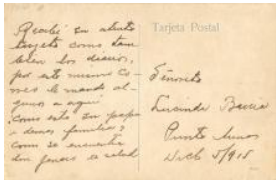 Recibí su atenta
tarjeta como tam
bien los diarios,
por este mismo Co-
rreo le mando al-
gunos de aquí
Como está su papá
y demas familia?
Como se encuentra
de salud
Tarjeta Postal
Señorita
Lucinda
Punta Arenas